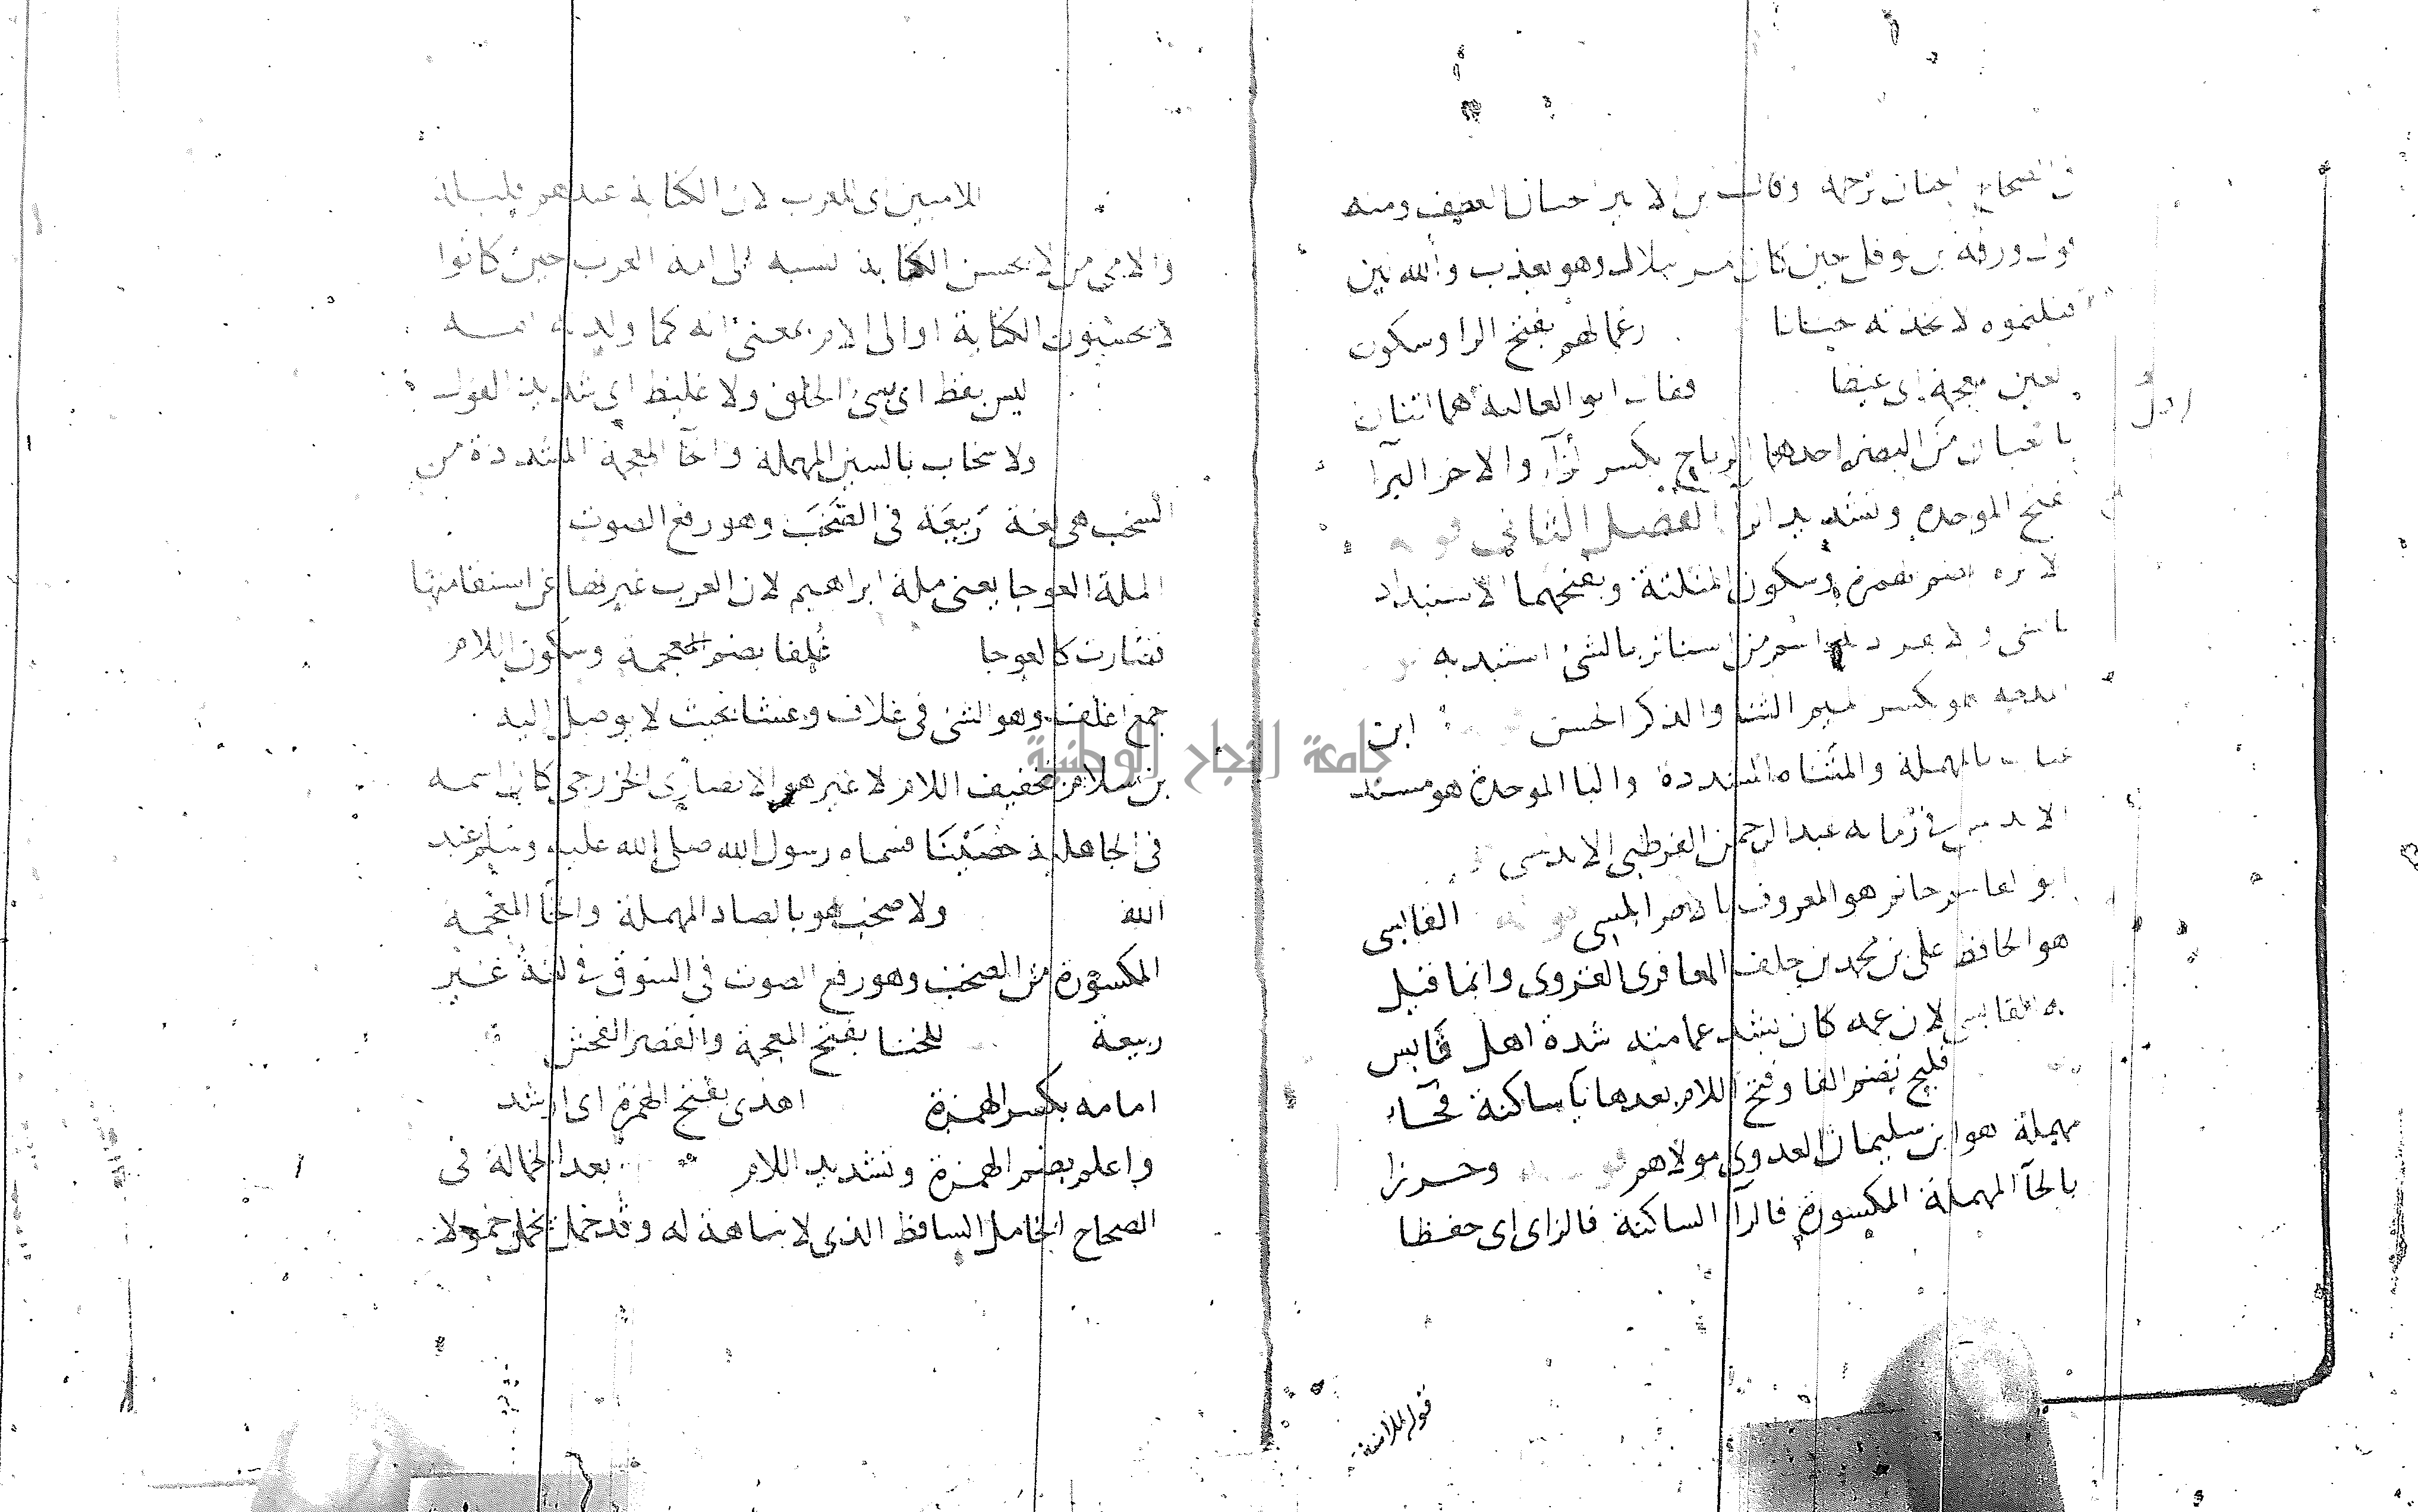 في الصحاح الحنان الرحمة وقال ابن الاثير الحنان العطف ومنه
قول ورقة بن نوفل حين كان يمر ببلال وهو يعذب والله لئن
قتلتموه لاتخذته حنانا رغما لهم بفتح الرا وسكون
الغين معجمة اى غيضا فقال ابو العالية هما اثنان
تابعيان من البصرة احدهما الرياحي بكسر الرآ والاخر البرا
بفتح الموحدة وتشديد الرا الفصل الثاني قوله
الاثرة بضم الهمزة وسكون المثلثة وبفتحهما الاستبداد
بالشى والانفراد به اسم من استاثر بالشئ استبد به
المدحة هو بكسر الميم الثنا والذكر الحسن ابن
عتاب بالمهملة والمثناة المشددة والبا الموحدة هو مسند
الاندلس في زمانه عبد الرحمن القرطبي الاندلسى
ابو القاسم حاتم هو المعروف بالطرابلسى قوله القابسى
هو الحافظ على بن محمد بن خلف المعافرى القروى وانما قيل
له القابسى لان عمه كان يشد عمامته شدة اهل قابس
فليح بضم الفا وفتح اللام بعدها يآ ساكنة فحآء
مهملة هو ابن سليمان العدوى مولاهم قوله وحرزا
بالحآ المهملة المكسورة فالرآ الساكنة فالزاى اى حفظا
قوله للامنة
للاميين اى للعرب لان الكتابة عندهم قليلة
والامى من لا يحسن الكتابة نسبه الى امة العرب حين كانوا
لا يحسنون الكتابة او الى الام بمعنى انه كما ولدته امه
ليس بفظ اى سيئ الخلق ولا غليظ اى شديد القول
ولا سخاب بالسين المهملة والخآ المعجمة المشددة من
السخب هى لغة رَبيعَة فى الصَّخَب وهو رفع الصوت
الملة العوجا يعنى ملة ابراهيم لان العرب غيرتها عن استقامتها
فصارت كالعوجا غُلفا بضم المعجمة وسكون اللام
جمع اغلف وهو الشئ فى غلاف وغشا بحيث لا يوصل اليه
بن سلام بتخفيف اللام لا غير هو الانصارى الخزرجى كان اسمه
فى الجاهلية حُصَيْنًا فسماه رسول الله صلى الله عليه وسلم عبد
الله ولا صخب هو بالصاد المهملة والخآ المعجمة
المكسورة من الصخب وهو رفع الصوت فى السوق فى لغة غير
ربيعة للخنا بفتح المعجمة والقصر الفحش
امامه بكسر الهمزة اهدى بفتح الهمزة اى ارشد
واعلم بضم الهمزة وتشديد اللام بعد الخمالة فى
الصحاح الخامل الساقط الذى لا نباهة له وقد خمل يخمل خمولا